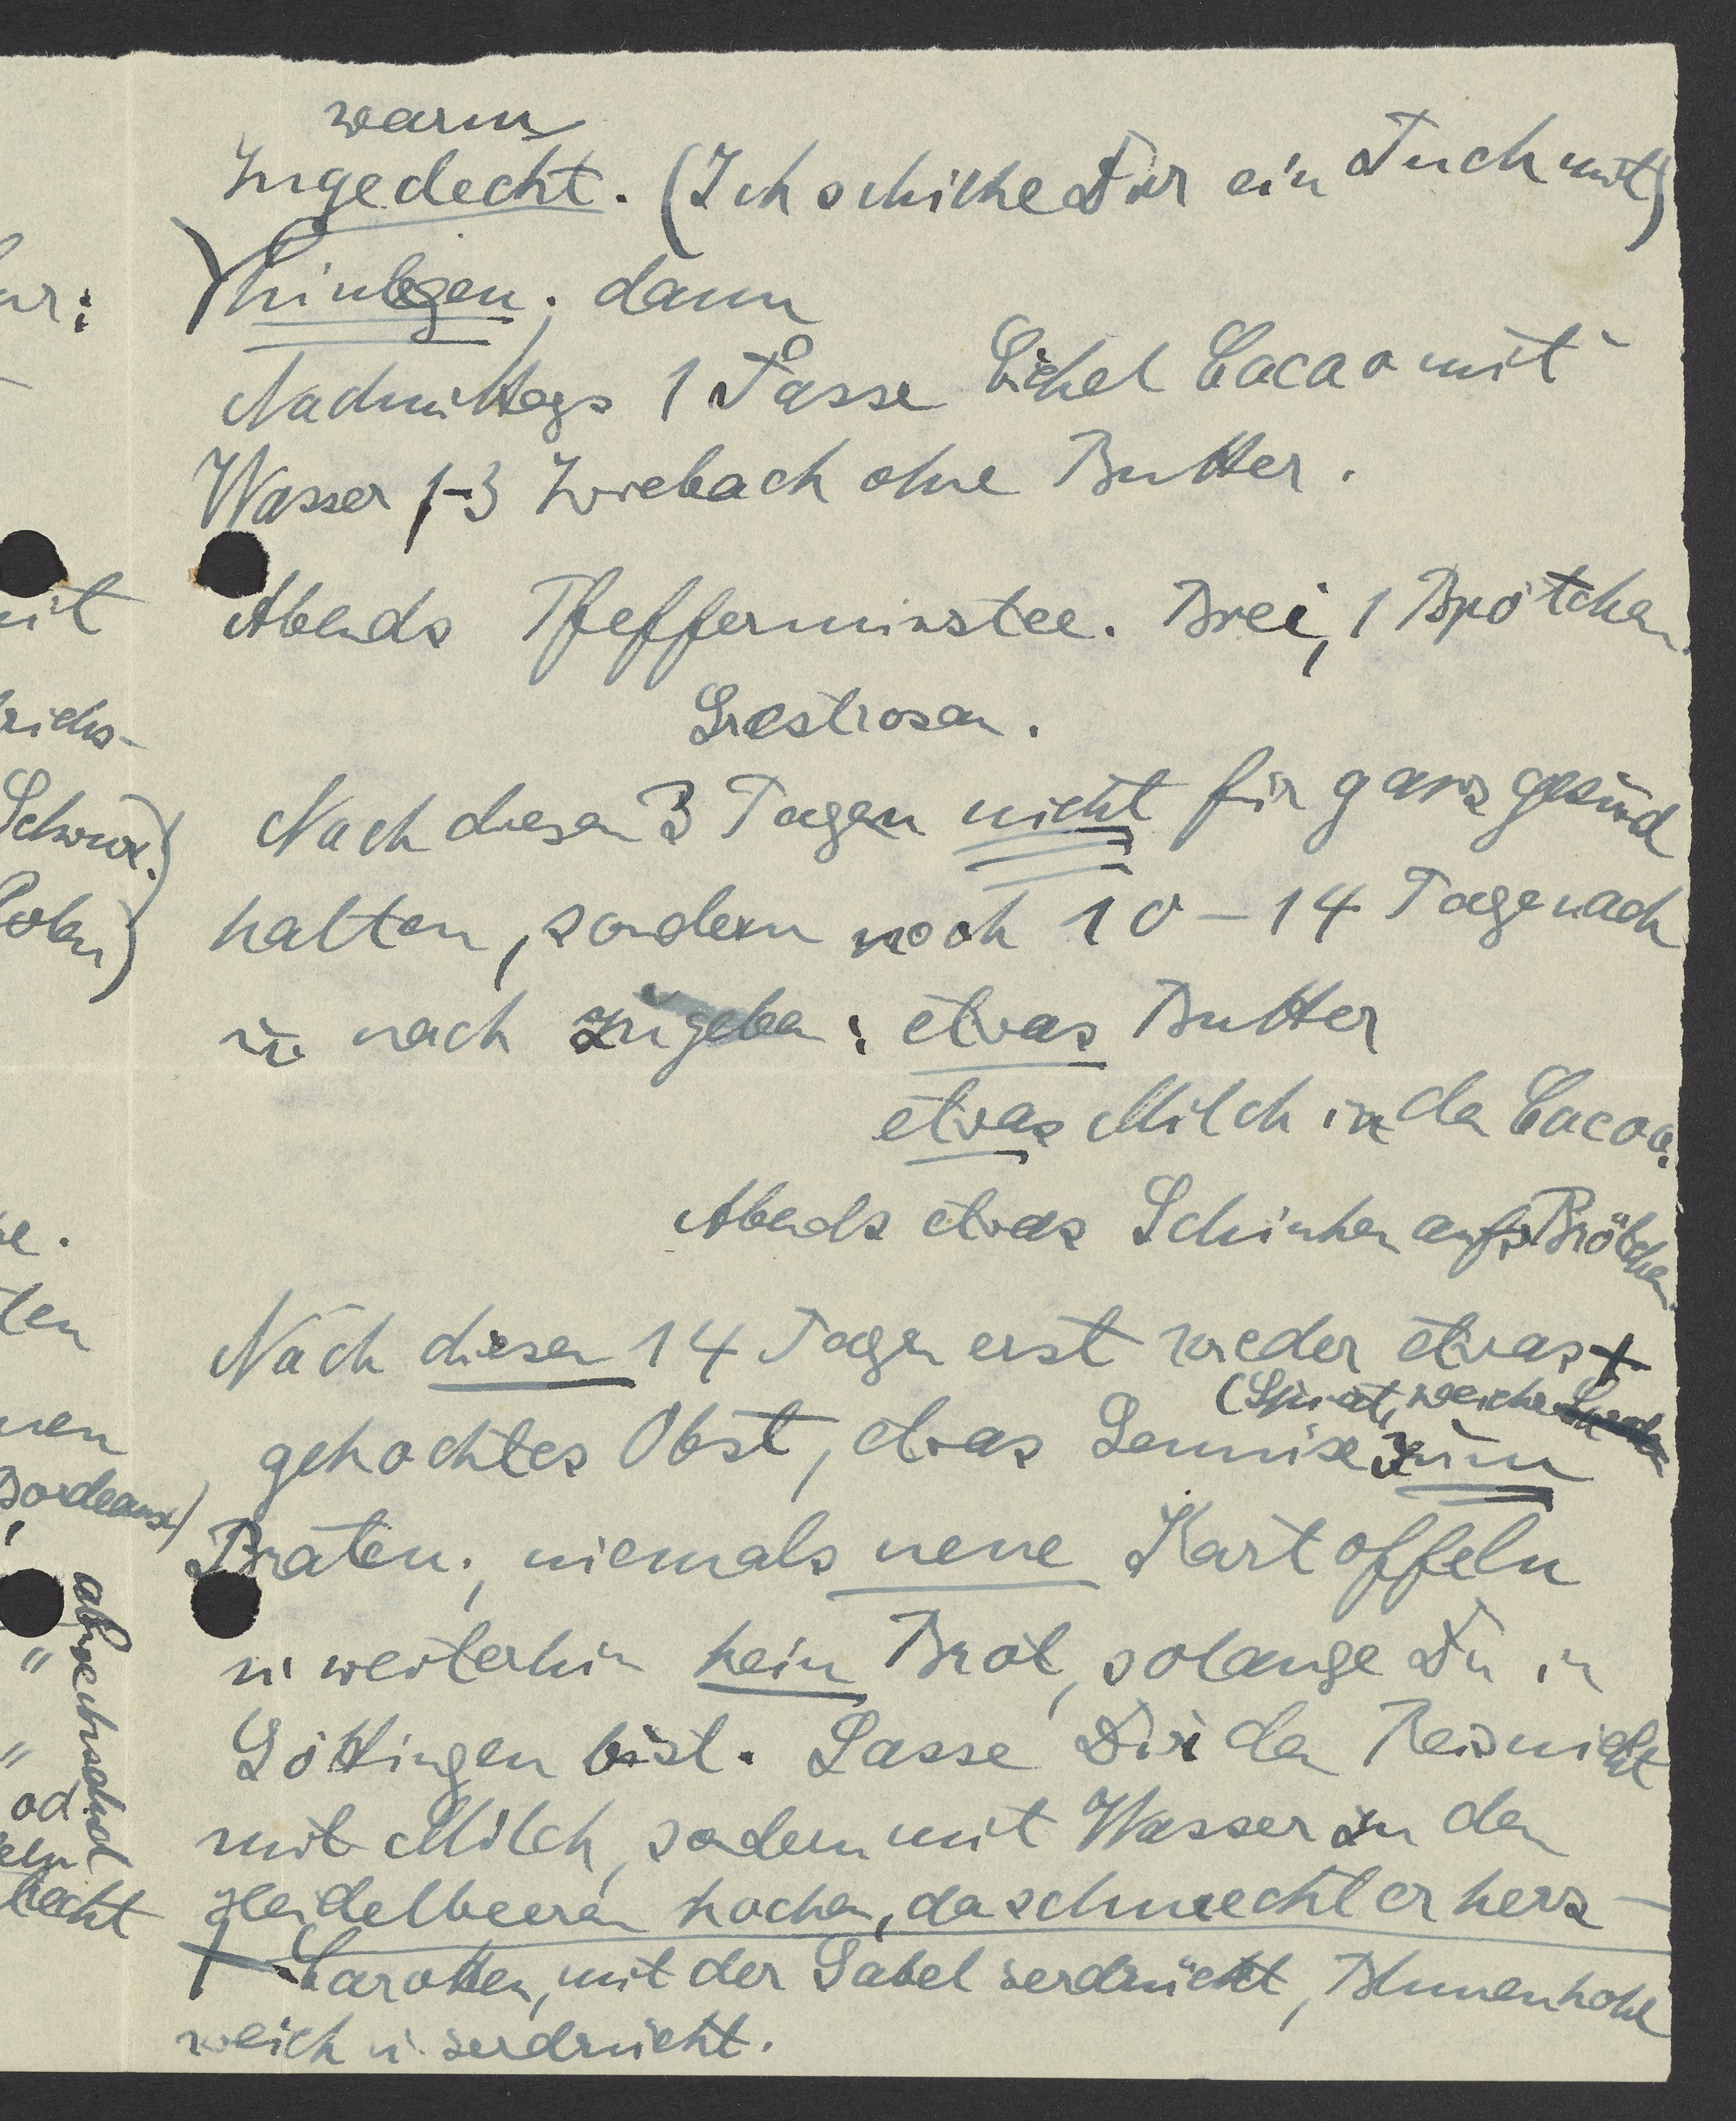 warm
Zugedeckt. (Ich schicke Dir ein Tuch mit)
hinlegen; dann
Nachmittags 1 Tasse Eichel Cacao mit
Wasser 1-3 Zwieback ohne Butter.
Abends Pfefferminztee. Brei, 1 Brötchen
Nach diesen 3 Tagen nicht für ganz gesund
halten, sondern noch 10-14 Tage nach
u. nach zugeben: etwas Butter
etwas Milch in den Cacao.
Abends etwas Schinken aufs Brötchen
Nach diesen 14 Tagen erst wieder etwas +
(Spinat, weiche
gekochtes Obst, etwas Gemüse zum
Braten; niemals neue Kartoffeln
u. weiterhin kein Brot, solange Du in
Göttingen bist. Lasse Dir den Reis nicht
mit Milch, sondern mit Wasser zu den
Heidelbeeren kochen, da schmeckt er herz-
+ Carotten, mit der Gabel zerdrückt, Blumenkohl
weich u. zerdrückt.
ur:
mit
richs-
Schwarz.)
se.
ten
nen
Bordeaux)
"
"
od
eln
Hecht
abwechselnd